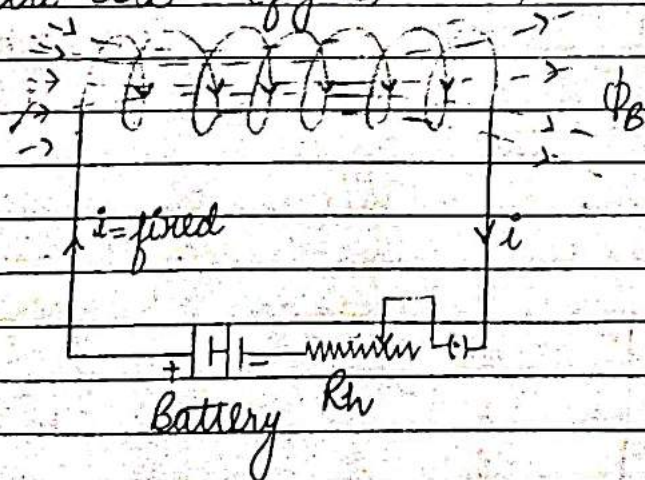 ϕB
i=fixed
i
+ -
Rh
Battery